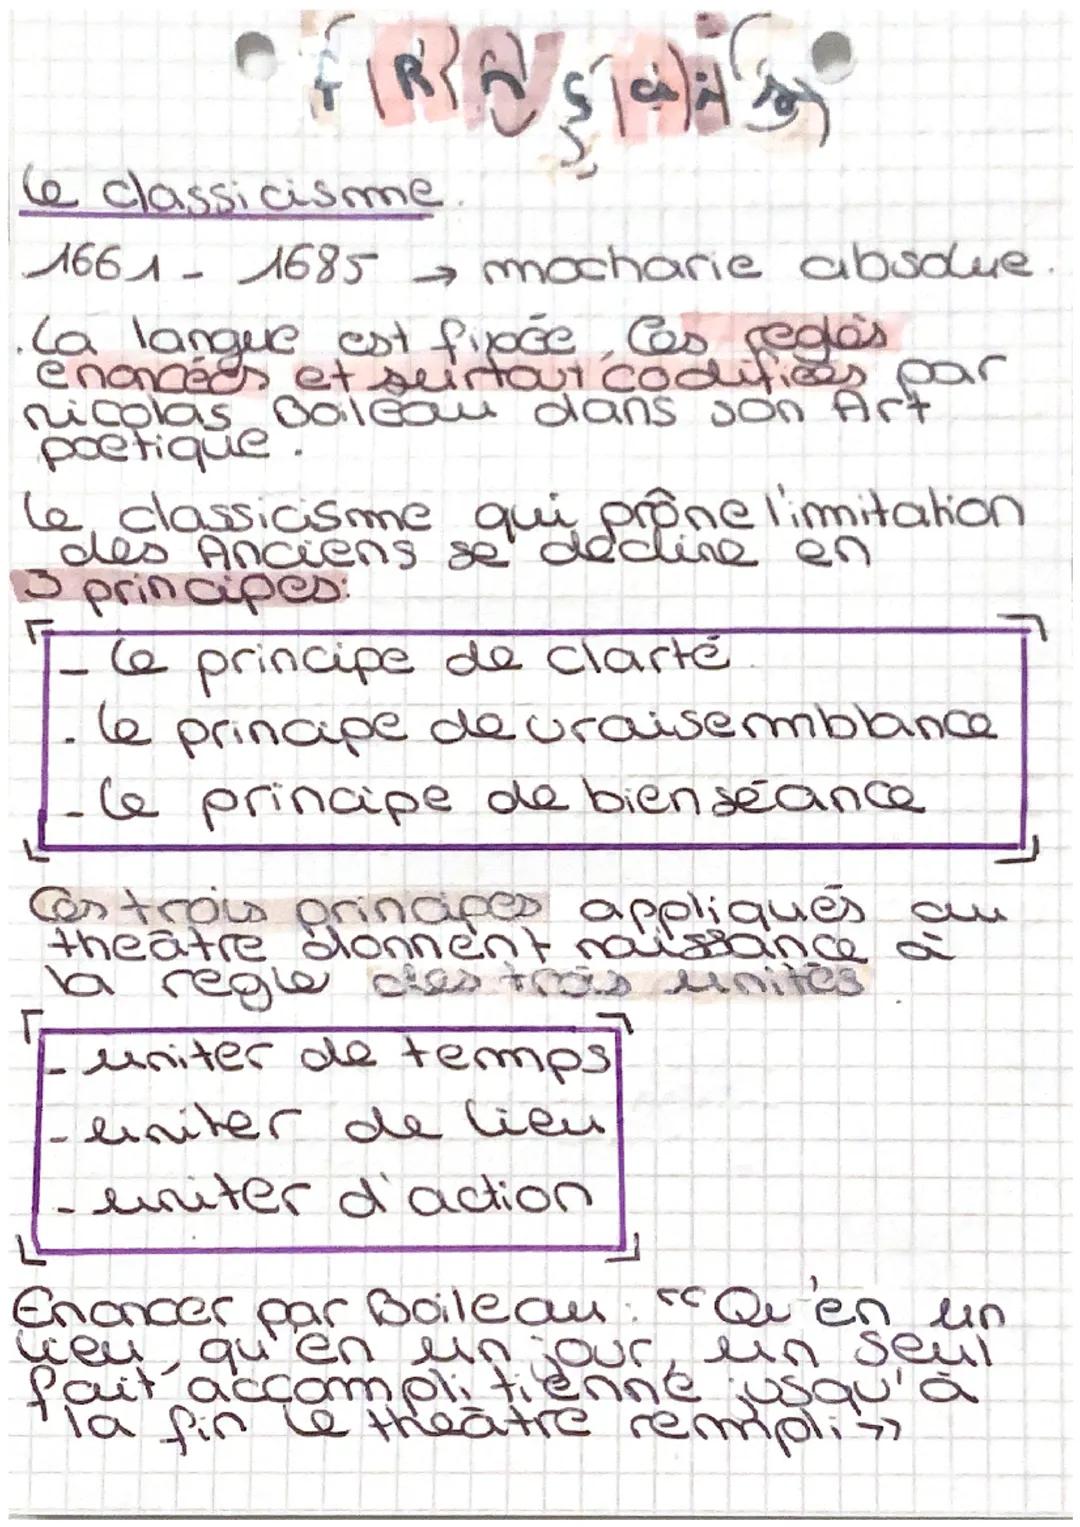 fRançais
Le classicisme.
1661 - 1685 → mocharie absolue.
. La langue est fixée, Ces regles
enoncées et surtout codifiées par
nicolas Boileau dans son Art
poetique.
Le classicisme qui prône l'imitation
des Anciens se décline en
3 principes:
- Le principe de clarté.
. Le principe de vraisemblance
- Le principe de bienséance
Ces trois principes appliqués au
theâtre donnent naissance à
la regle des trois unités
- uniter de temps
- uniter de lieu
- uniter d'action
Enoncer par Boileau : "Qu'en un
lieu, qu'en un jour, un seul
fait accompli tienne jusqu'à
la fin le theâtre rempli »